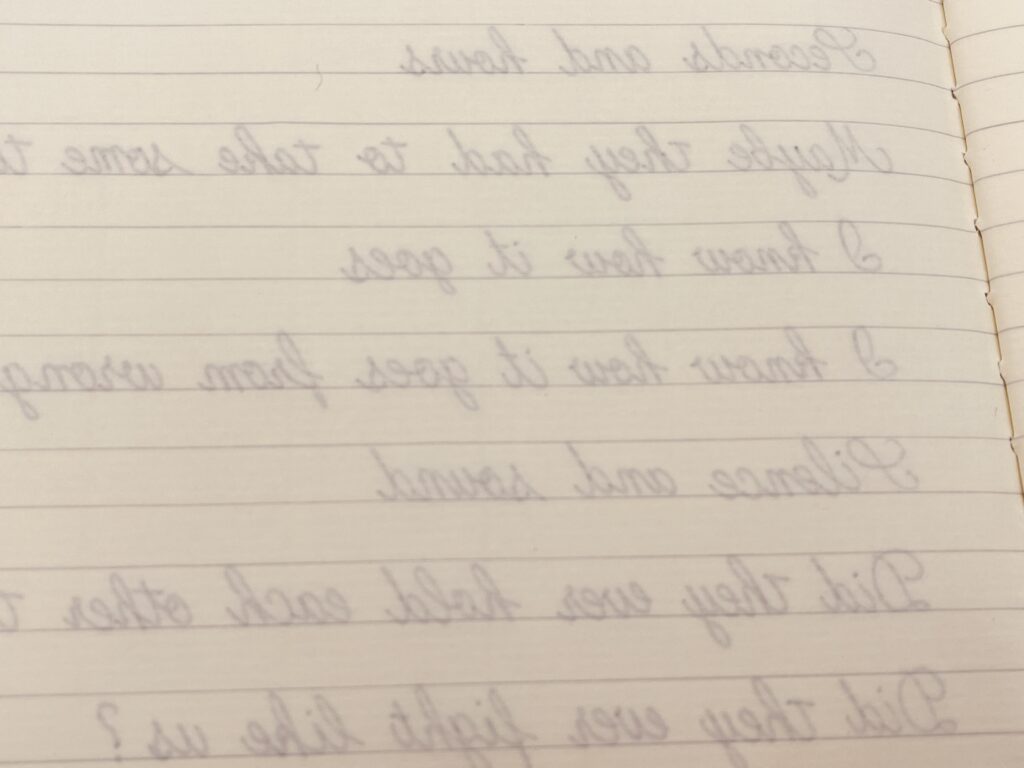 Seconds and hours
Maybe they had to take some t
I know how it goes
I know how it goes from wrong
Silence and sound
Did they ever hold each other t
Did they ever fight like us?